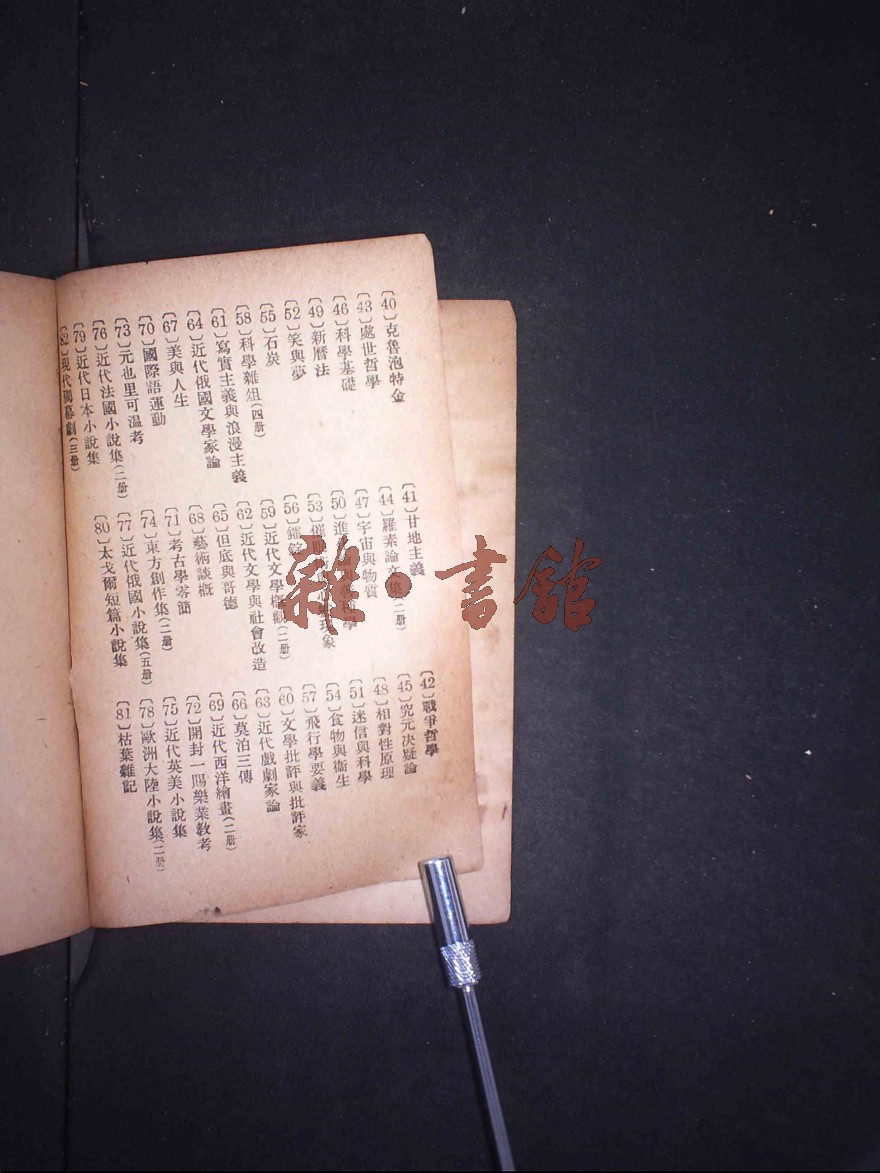 〔40〕克魯泡特金
〔41〕甘地主義
〔42〕戰爭哲學
〔43〕處世哲學
〔44〕羅素論文集(二册)
〔45〕究元决疑論
〔46〕科學基礎
〔47〕宇宙與物質
〔48〕相對性原理
〔49〕新曆法
〔50〕進
〔51〕迷信與科學
〔52〕笑與夢
〔53〕催現象
〔54〕食物與衞生
〔55〕石炭
〔56〕鐳錠
〔57〕飛行學要義
〔58〕科學雜俎(四册)
〔59〕近代文學概觀(二册)
〔60〕文學批評與批評家
〔61〕寫實主義與浪漫主義
〔62〕近代文學與社會改造
〔63〕近代戲劇家論
〔64〕近代俄國文學家論
〔65〕但底與哥德
〔66〕莫泊三傳
〔67〕美與人生
〔68〕藝術談概
〔69〕近代西洋繪畫(二册)
〔70〕國際語運動
〔71〕考古學零簡
〔72〕開封一賜樂業教考
〔73〕元也里可温考
〔74〕東方創作集(二册)
〔75〕近代英美小說集
〔76〕近代法國小說集(二册)
〔77〕近代俄國小說集(五册)
〔78〕歐洲大陸小說集(二册)
〔79〕近代日本小說集
〔80〕太戈爾短篇小說集
〔81〕枯葉雜記
〔82〕現代獨幕劇(三册)
雜·書館